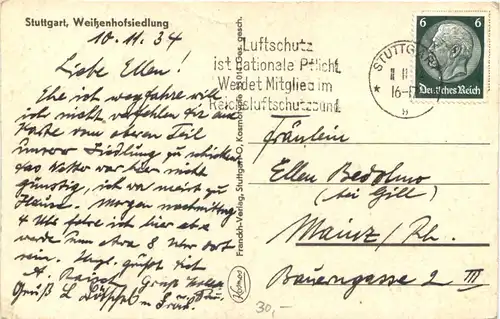 Stuttgart, Weißenhofsiedlung
10.11.34
Liebe Ellen!
Ehe ich wegfahre will
ich nicht verfehlen dir eine
Karte vom oberen Teil
unserer Siedlung zu schicken
das Wetter war hier nicht
günstig, ich war meist zu
Hause. Morgen nachmittag
4 Uhr fahre ich hier ab u.
werde um etwa 8 Uhr dort
sein. Herzl. grüßt dich
A. Gruß
Gruß L
Franckh-Verlag, Stuttgart-O, Kosmos
ges. gesch.
Kosmos
Luftschutz
ist nationale Pflicht
Werdet Mitglied im
Reichsluftschutzbund
STUTTGART
11
16-17
6 6
Deutsches Reich
Fräulein
Ellen
(bei Gill)
Mainz/Rh.
Bauerngasse 2 III
30,-